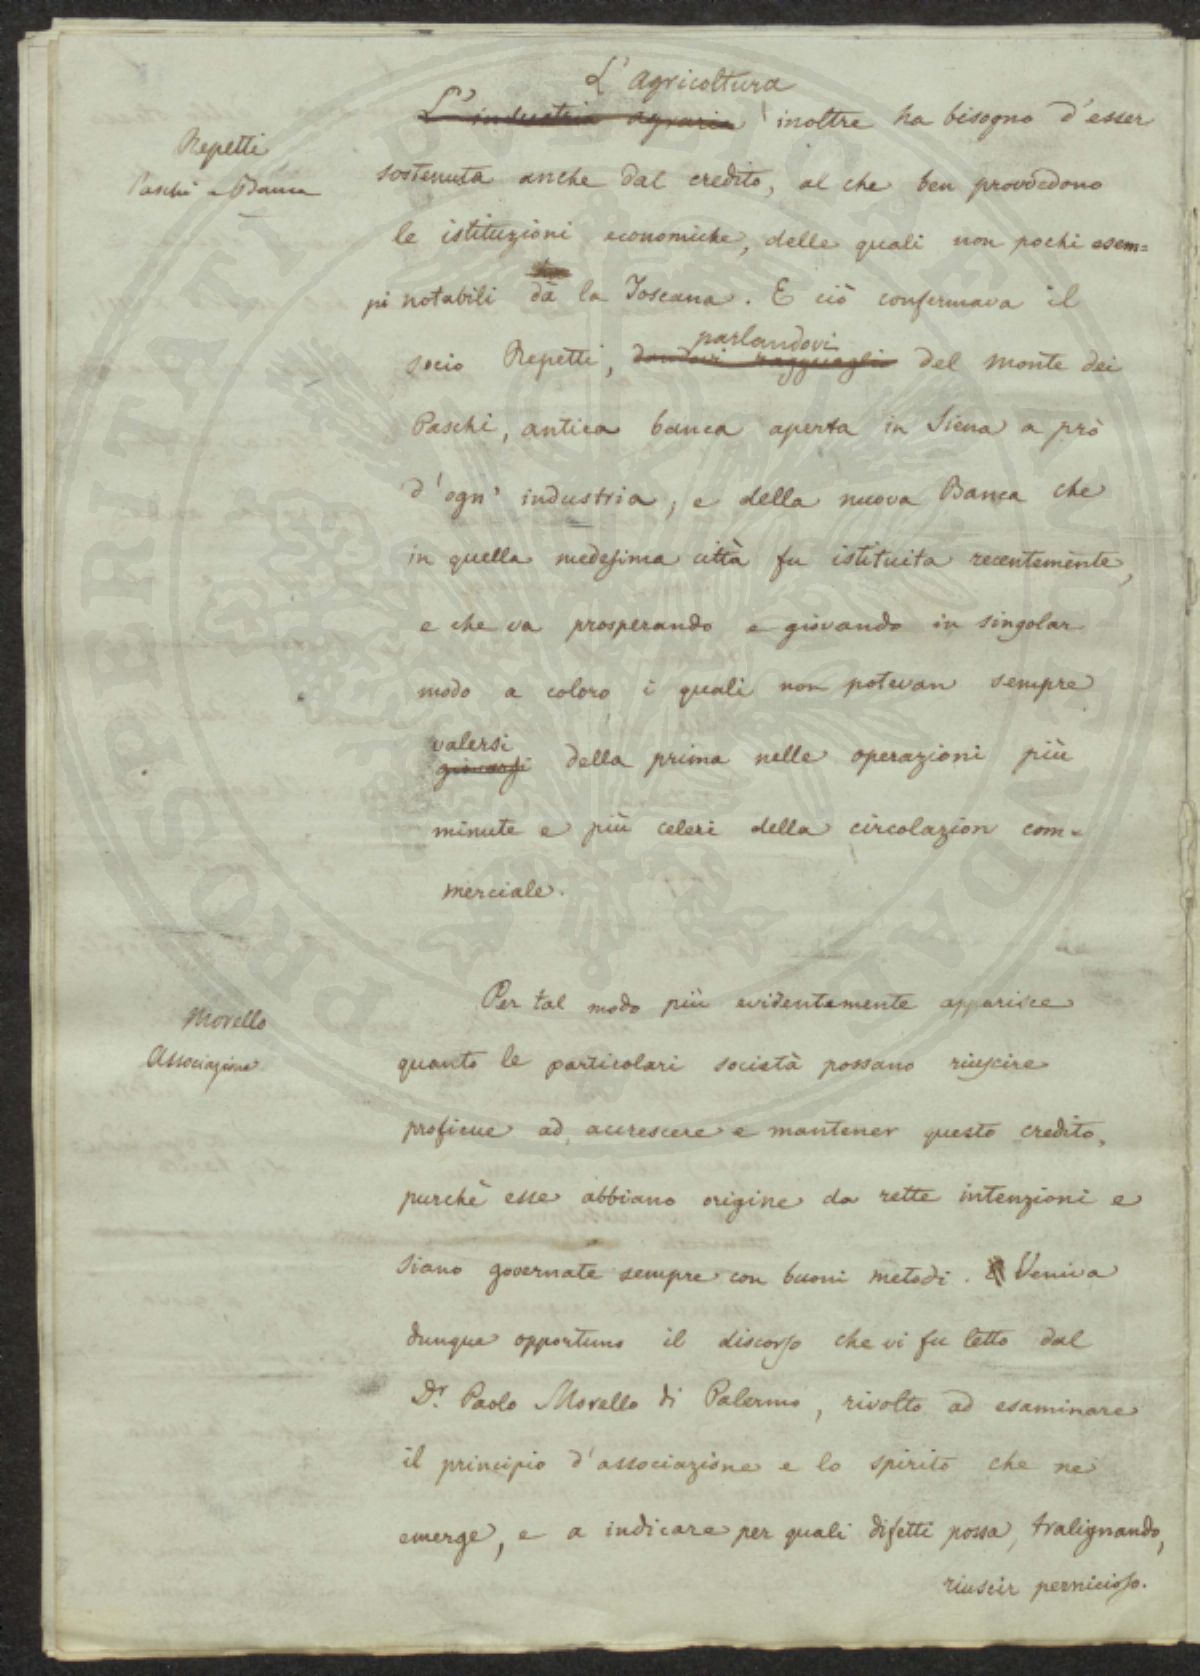 L'agricoltura
L'industria agraria inoltre ha bisogno d'esser
Repetti
sostenuta anche dal credito, al che ben provvedono
Paschi e Banca
le istituzioni economiche, delle quali non pochi esem=
pi notabili dà la Toscana. E ciò confermava il
parlandovi
socio Repetti, dandovi ragguagli del monte dei
Paschi, antica banca aperta in Siena a prò
d'ogn' industria, e della nuova Banca che
in quella medesima città fu istituita recentemente,
e che va prosperando e giovando in singolar
modo a coloro i quali non potevan sempre
valersi
giovarsi della prima nelle operazioni più
minute e più celeri della circolazion com=
merciale.
Per tal modo più evidentemente apparisce
Morello
Associazione
quanto le particolari società possano riuscire
proficue ad accrescere e mantener questo credito,
purchè esse abbiano origine da rette intenzioni e
siano governate sempre con buoni metodi. Veniva
dunque opportuno il discorso che vi fu letto dal
Dr. Paolo Morello di Palermo, rivolto ad esaminare
il principio d'associazione e lo spirito che ne
emerge, e a indicare per quali difetti possa, tralignando,
riuscir pernicioso.
PROSPERITATI PUBLICAE AUGENDAE